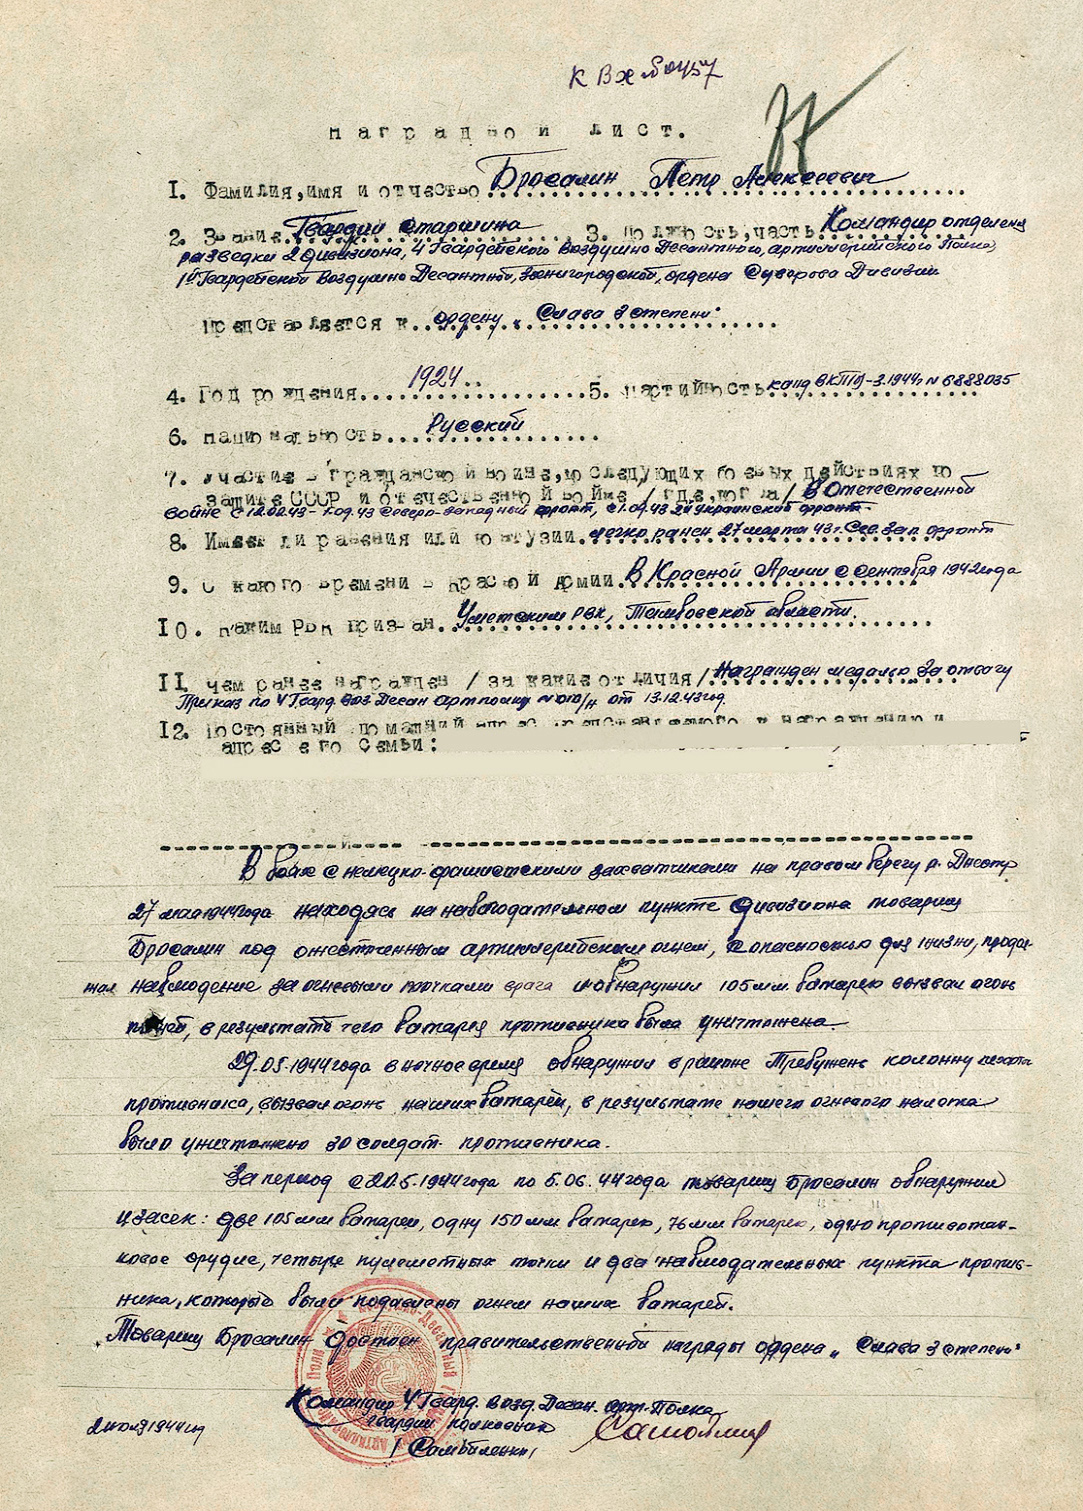 К Вх № 0457
наградной лист.
1. Фамилия, имя и отчество Бросалин Петр Алексеевич
2. Звание Гвардии старшина 3. Должность, часть Командир отделения
разведки 2 дивизиона, 4 Гвардейского Воздушно Десантного, артиллерийского Полка,
1й Гвардейской Воздушно Десантной, Звенигородской, ордена Суворова Дивизии
Представляется к ордену „Слава 3 степени"
4. Год рождения 1924 5. партийность канд ВКП(б) - 3.1944г N 6888035
6. национальность Русский
7. Участие в гражданской войне, последующих боевых действиях по
защите СССР и отечественной войне /где, когда/ В Отечественной
войне с 12.02.43 - 43 Северо-Западный фронт, с 1.09.43 2й Украинский фронт
8. Имеет ли ранения или контузии легко ранен 27 марта 43 г. Сев. Зап. фронт
9. С какого времени в Красной Армии В Красной Армии с сентября 1942 года
10. Каким РВК призван Уметским РВК, Тамбовской области.
11. чем ранее награжден /за какие отличия/ Награжден медалью За отвагу
Приказ по 4 Гвард. Воз Десан артполку № 010/н от 13.12.43 год.
12. Постоянный домашний адрес представляемого к награждению и
адрес его семьи:
В боях с немецко-фашистскими захватчиками на правом берегу р. Днестр
27 мая 1944 года находясь на наблюдательном пункте дивизиона товарищ
Бросалин под ожесточенным артиллерийским огнем, с опасностью для жизни, продол-
жал наблюдение за огневыми точками врага и обнаружил 105 мм. батарею вызвал огонь
в результате чего батарея противника была уничтожена.
29.05.1944 года в ночное время обнаружил в районе Требужень колонну пехоты
противника, вызвал огонь наших батарей, в результате нашего огневого налета
было уничтожено 30 солдат противника.
За период с 20.5.1944 года по 5.06.44 года товарищ Бросалин обнаружил
и засек: две 105 мм батареи, одну 150 мм батарею, 76 мм батарею, одно противотан-
ковое орудие, четыре пулеметных точки и два наблюдательных пункта против-
ника, которые были подавлены огнем наших батарей.
Товарищ Бросалин достоин правительственной награды ордена „Слава 3 степени"
Командир 4 Гвард. Возд. Десан. арт. Полка
гвардии полковник
2 июля 1944 год